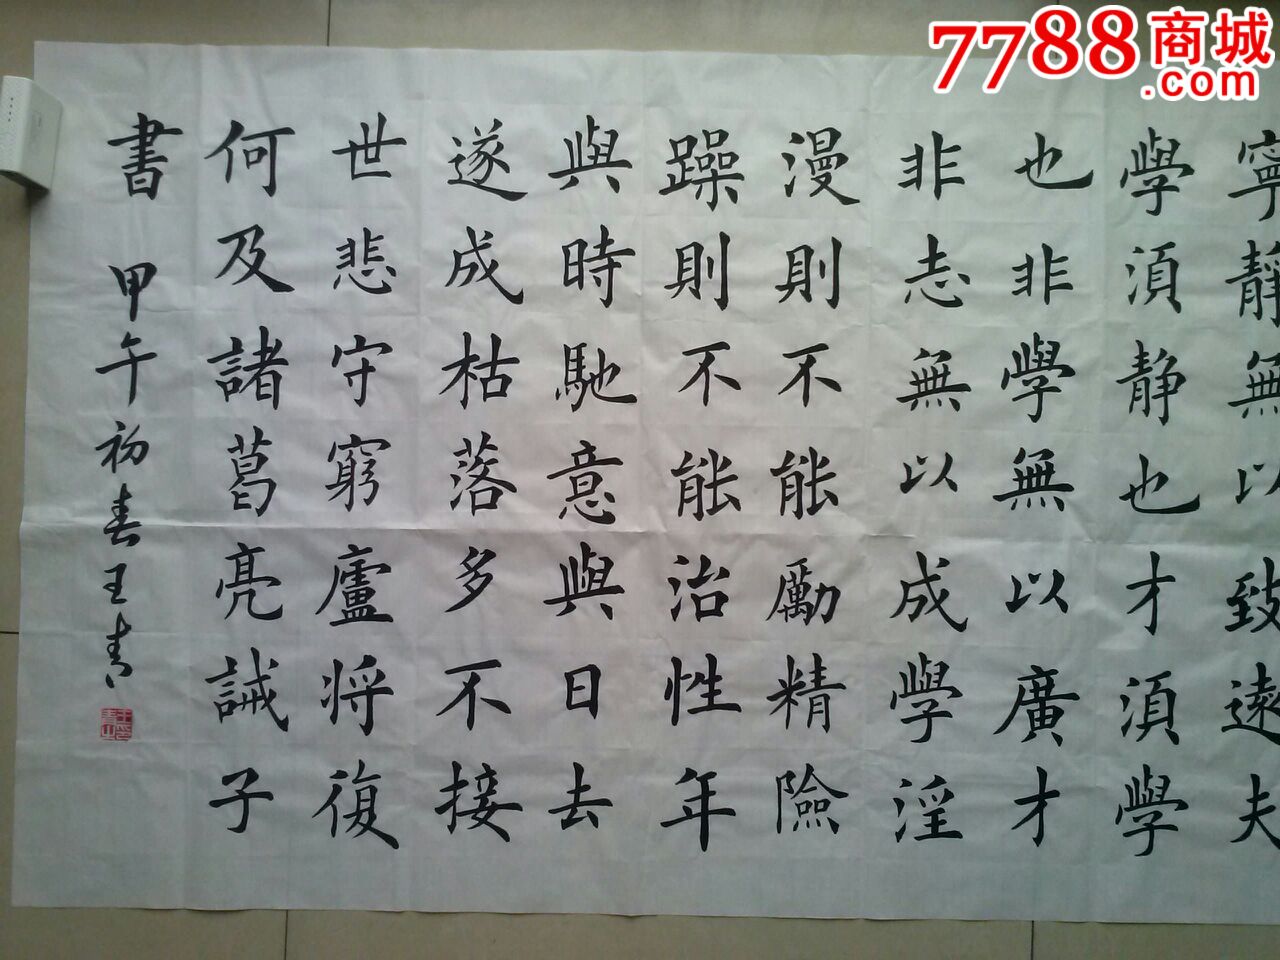 7788商城
.com
寧靜無以致遠夫
學須静也才須學
也非學無以廣才
非志無以成學淫
漫則不能勵精險
躁則不能治性年
與時馳意與日去
遂成枯落多不接
世悲守窮廬將復
何及諸葛亮誡子
書 甲午初春王青